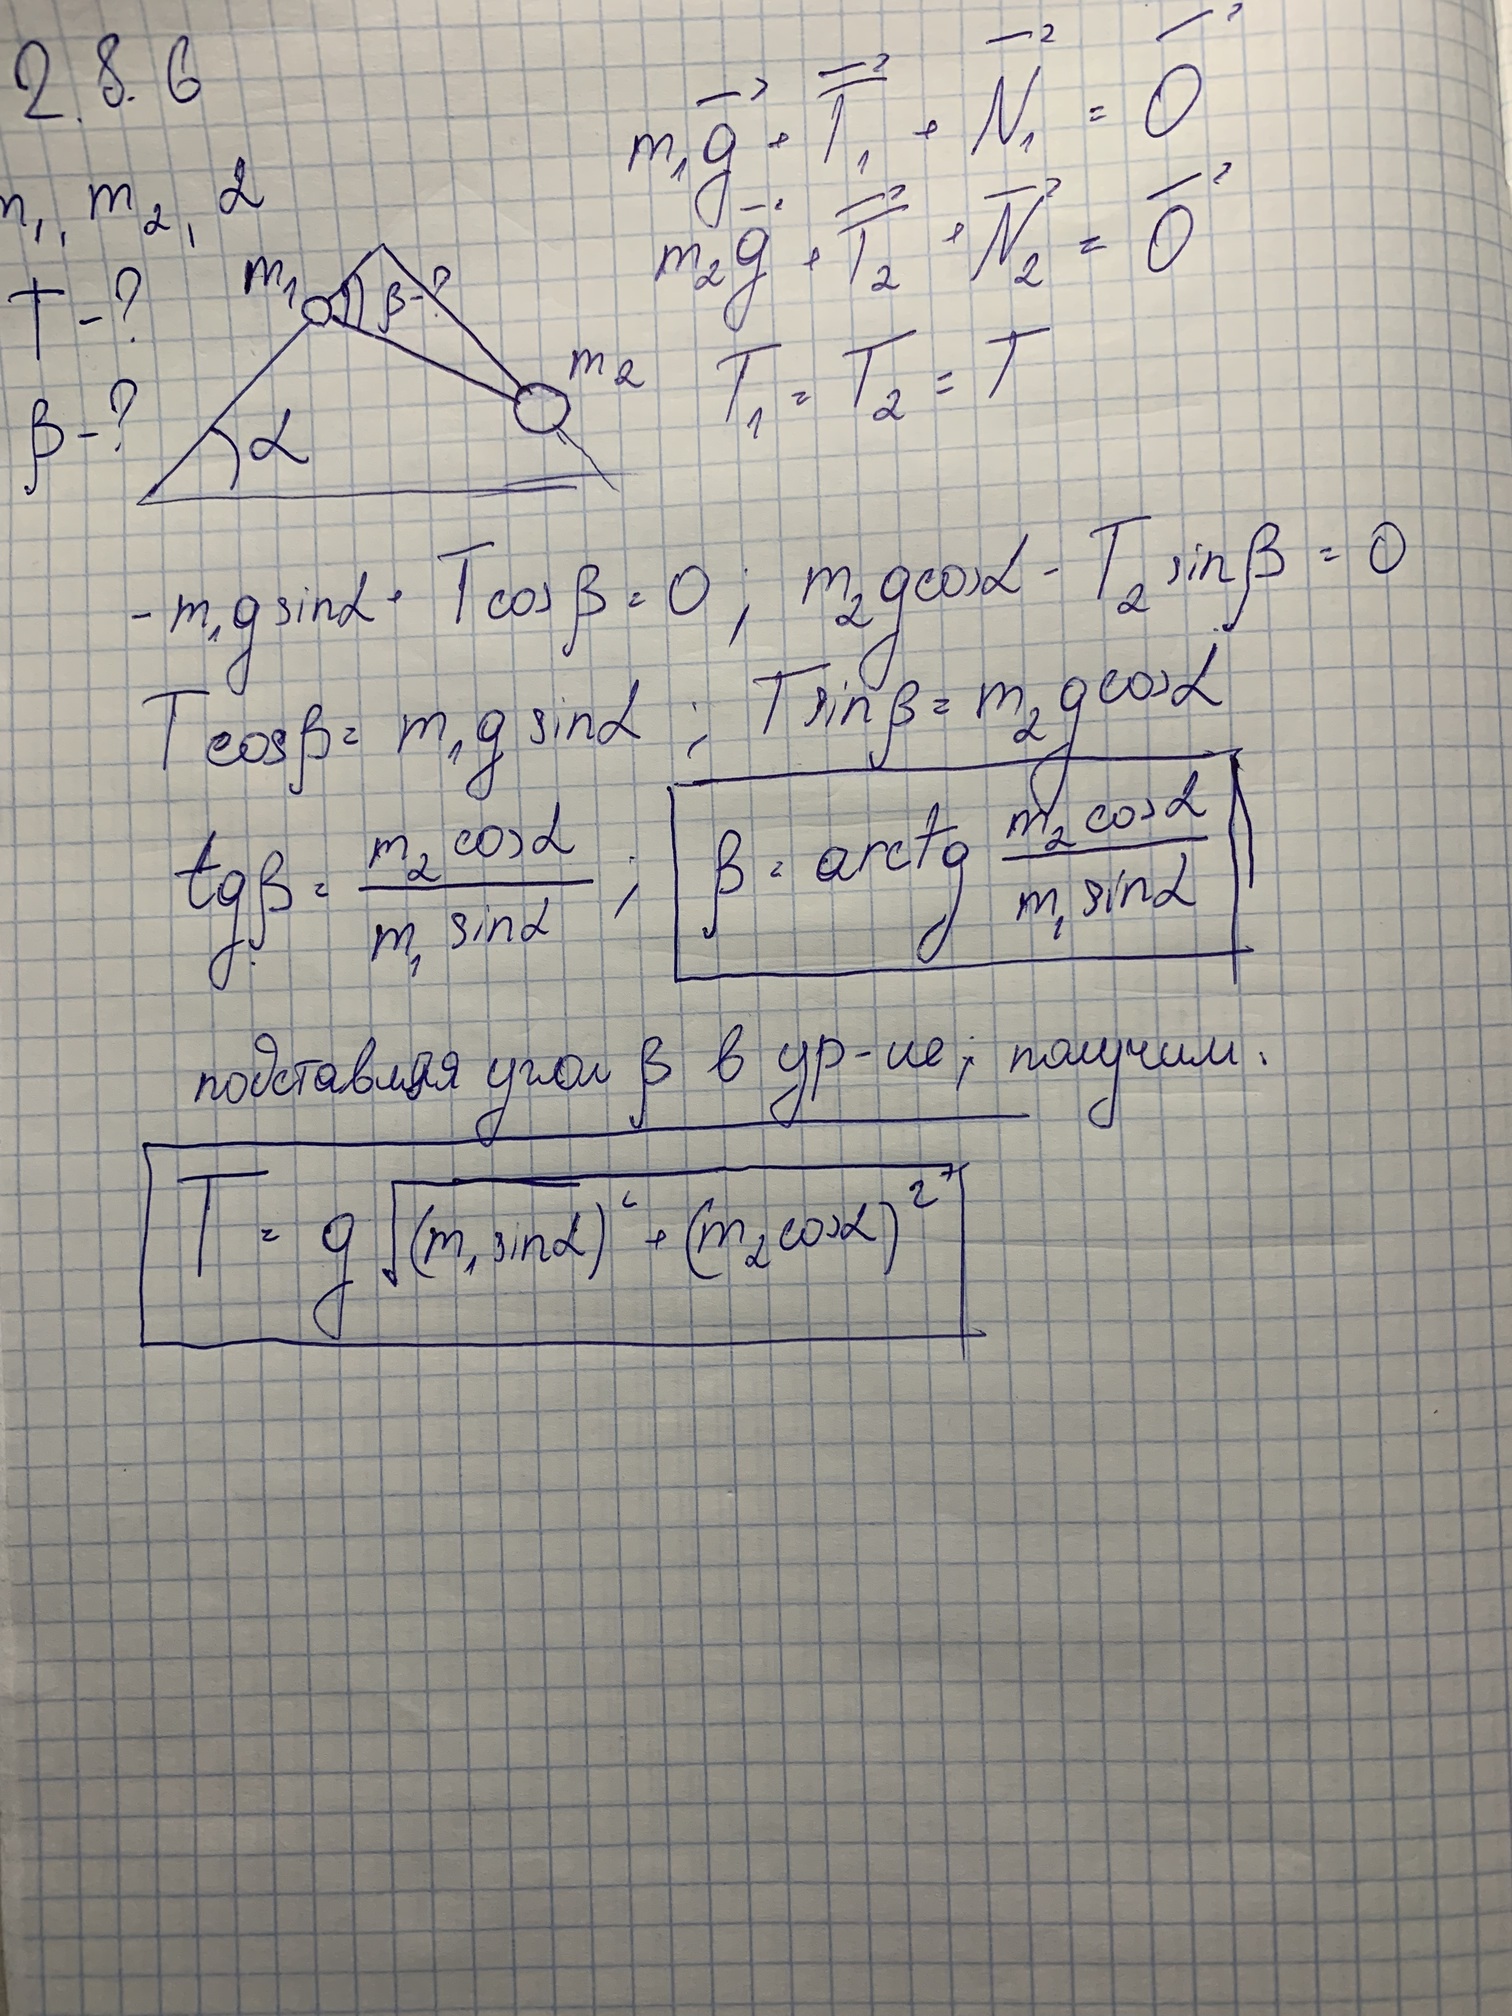 2.8.6
m₁, m₂, α
T-?
β-?
m₁
β-?
m₂
α
m₁g⃗ + T⃗₁ + N⃗₁ = 0⃗
m₂g⃗ + T⃗₂ + N⃗₂ = 0⃗
T₁ = T₂ = T
-m₁g sinα + T cosβ = 0; m₂g cosα - T₂ sinβ = 0
T cosβ = m₁g sinα ; T sinβ = m₂g cosα
tgβ = (m₂ cosα)/(m₁ sinα) ; β = arctg (m₂ cosα)/(m₁ sinα)
подставляя угол β в ур-ие; получим:
T = g√((m₁ sinα)² + (m₂ cosα)²)